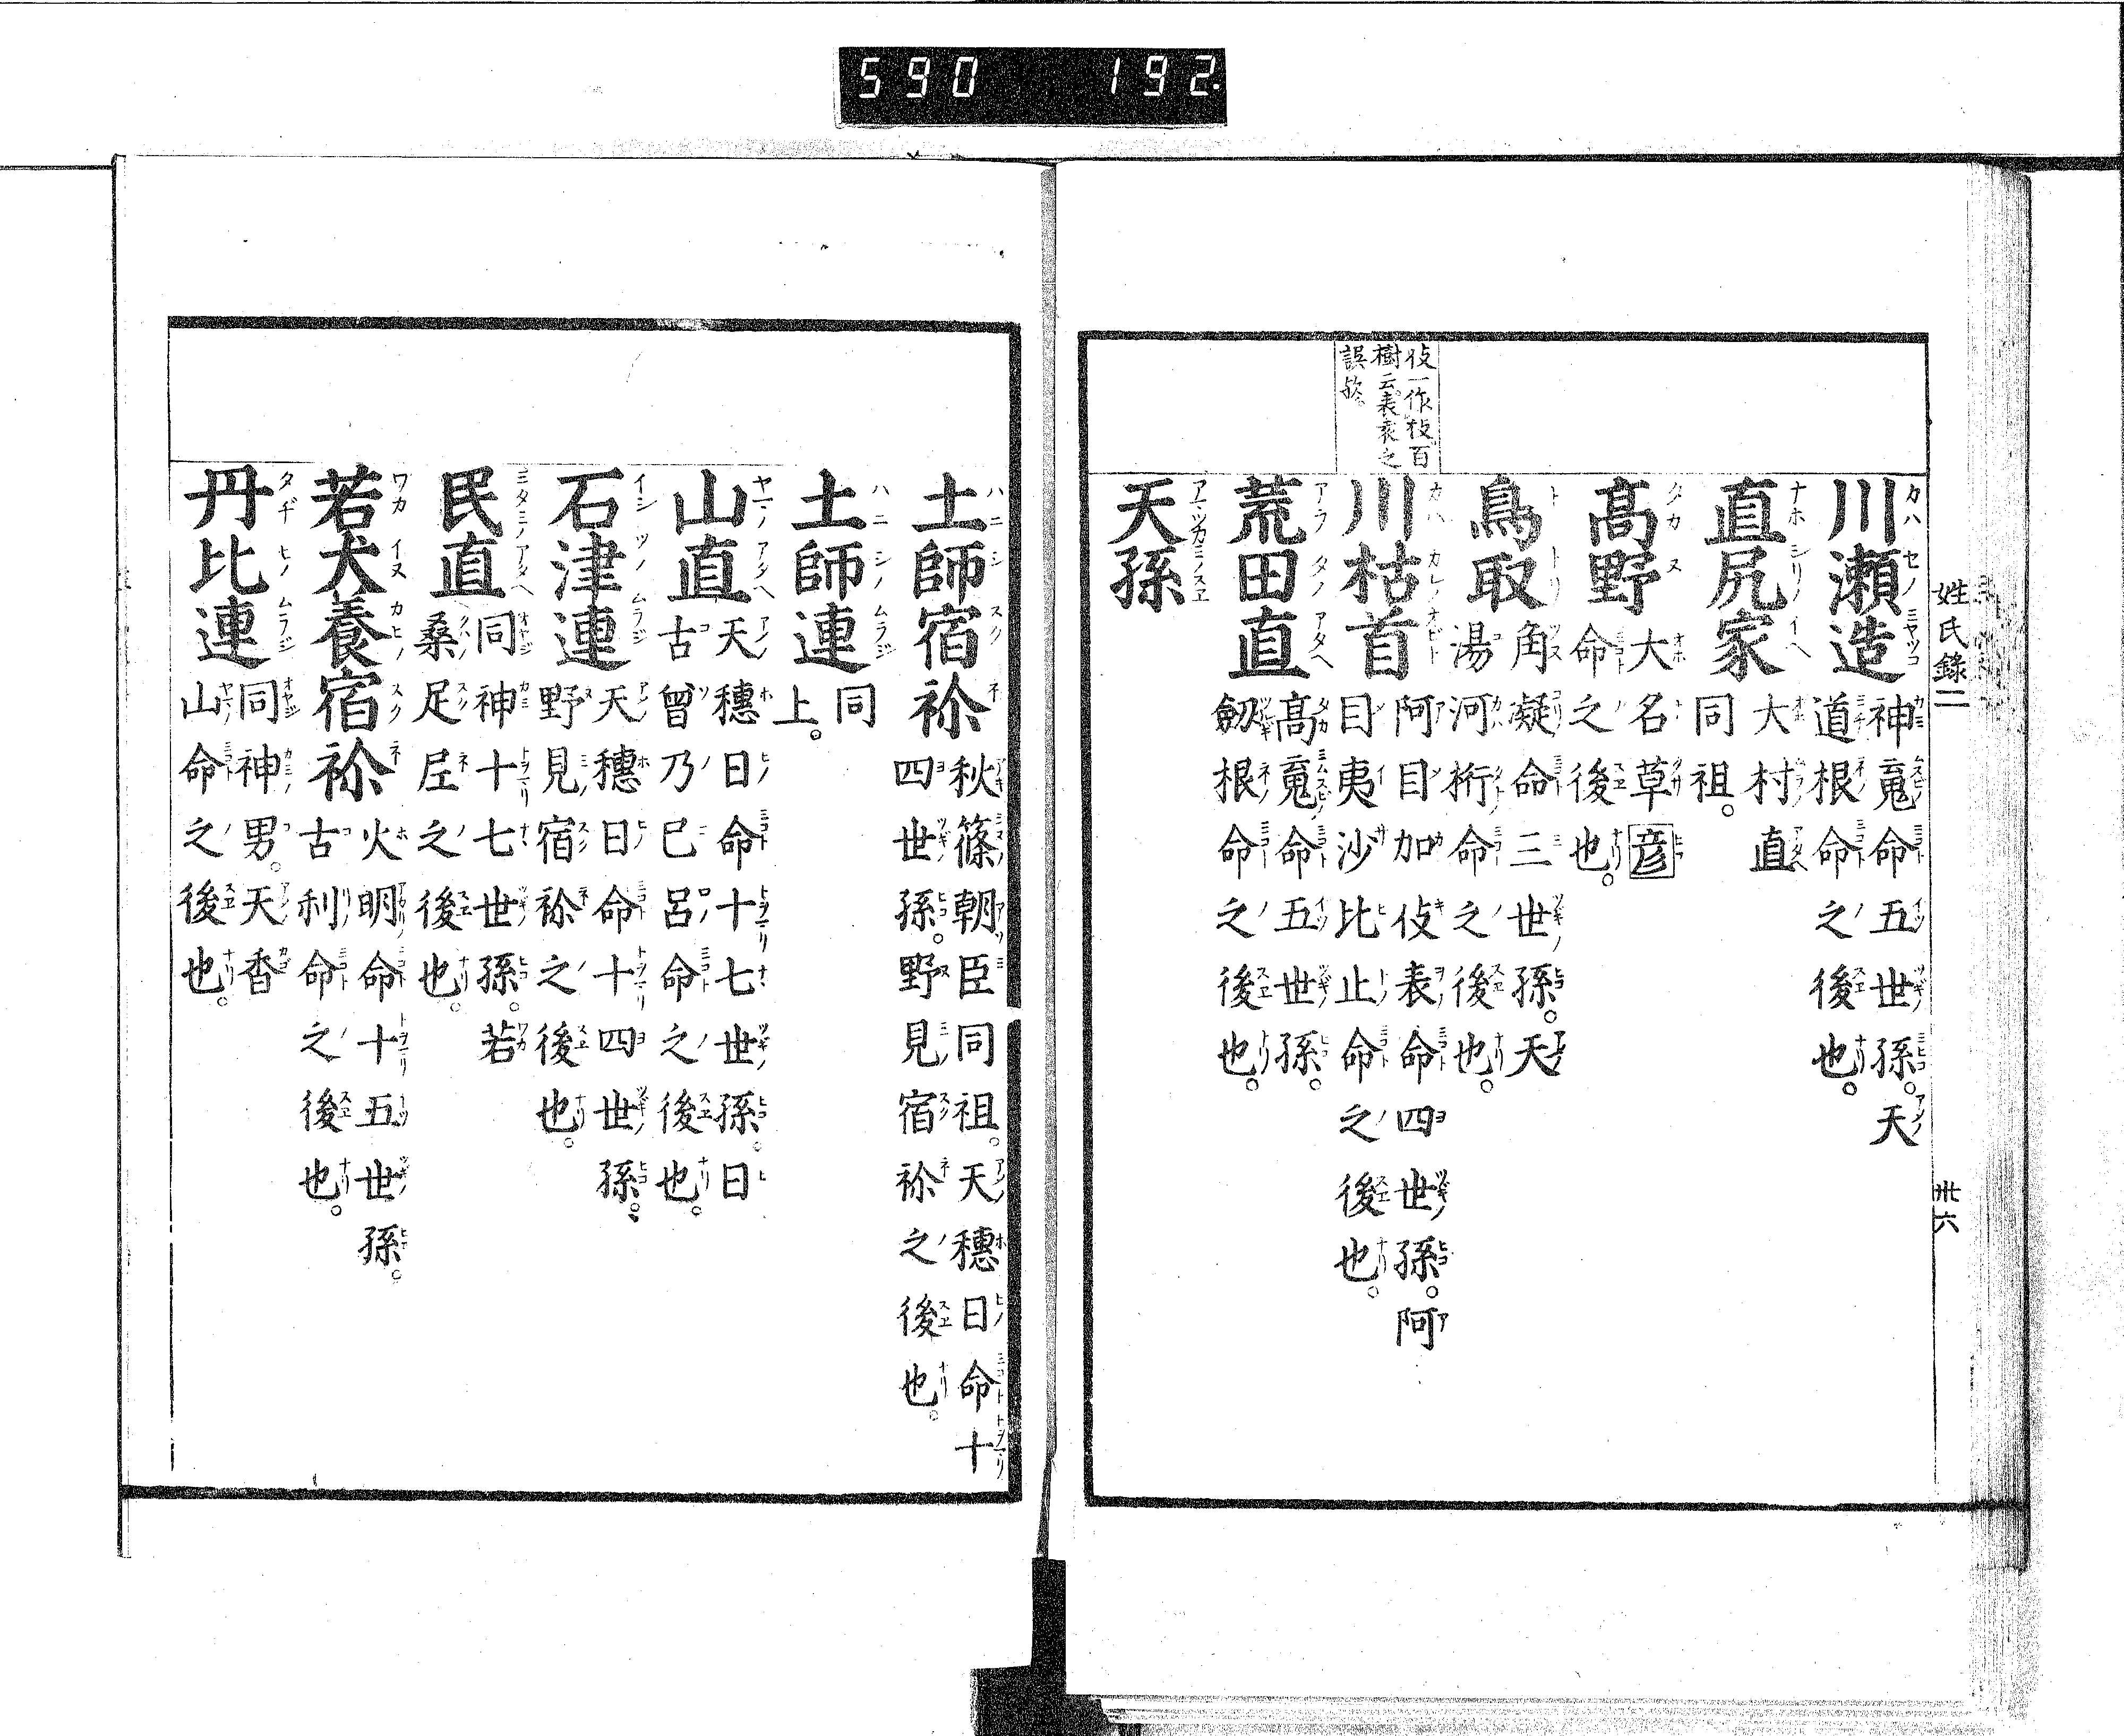 590 192
姓氏錄二
卅六
伎一作枝百
樹云表袁之
誤歟
川瀬造
神魂命五世孫。天
道根命之後也。
直尻家
大村直
同祖。
髙野
大名草彦
命之後也。
鳥取
角凝命三世孫。天
湯河桁命之後也。
川枯首
阿目加伎表命四世孫。阿
目夷沙比止命之後也。
荒田直
髙魂命五世孫。
劔根命之後也。
天孫
土師宿祢
秋篠朝臣同祖。天穗日命十
四世孫。野見宿祢之後也。
土師連
同
上。
山直
天穗日命十七世孫。日
古曾乃己呂命之後也。
石津連
天穗日命十四世孫。
野見宿祢之後也。
民直
同神十七世孫。若
桑足尼之後也。
若犬養宿祢
火明命十五世孫。
古利命之後也。
丹比連
同神男。天香
山命之後也。